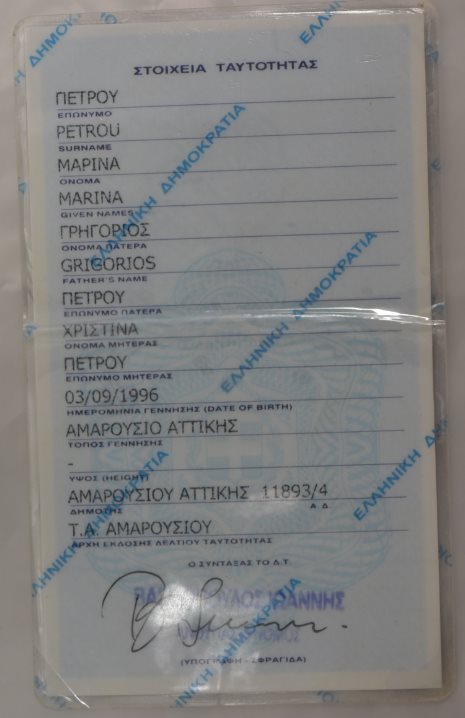 ΕΛΛΗΝΙΚΗ ΔΗΜΟΚΡΑΤΙΑ
ΣΤΟΙΧΕΙΑ ΤΑΥΤΟΤΗΤΑΣ
ΠΕΤΡΟΥ
ΕΠΩΝΥΜΟ
PETROU
SURNAME
ΜΑΡΙΝΑ
ΟΝΟΜΑ
MARINA
GIVEN NAMES
ΓΡΗΓΟΡΙΟΣ
ΟΝΟΜΑ ΠΑΤΕΡΑ
GRIGORIOS
FATHER'S NAME
ΠΕΤΡΟΥ
ΕΠΩΝΥΜΟ ΠΑΤΕΡΑ
ΧΡΙΣΤΙΝΑ
ΟΝΟΜΑ ΜΗΤΕΡΑΣ
ΠΕΤΡΟΥ
ΕΠΩΝΥΜΟ ΜΗΤΕΡΑΣ
03/09/1996
ΗΜΕΡΟΜΗΝΙΑ ΓΕΝΝΗΣΗΣ (DATE OF BIRTH)
ΑΜΑΡΟΥΣΙΟ ΑΤΤΙΚΗΣ
ΤΟΠΟΣ ΓΕΝΝΗΣΗΣ
-
ΥΨΟΣ (HEIGHT)
ΑΜΑΡΟΥΣΙΟΥ ΑΤΤΙΚΗΣ 11893/4
ΔΗΜΟΤΗΣ Α.Δ.
Τ.Α. ΑΜΑΡΟΥΣΙΟΥ
ΑΡΧΗ ΕΚΔΟΣΗΣ ΔΕΛΤΙΟΥ ΤΑΥΤΟΤΗΤΑΣ
Ο ΣΥΝΤΑΞΑΣ ΤΟ Δ.Τ.
ΙΩΑΝΝΗΣ
(ΥΠΟΓΡΑΦΗ - ΣΦΡΑΓΙΔΑ)